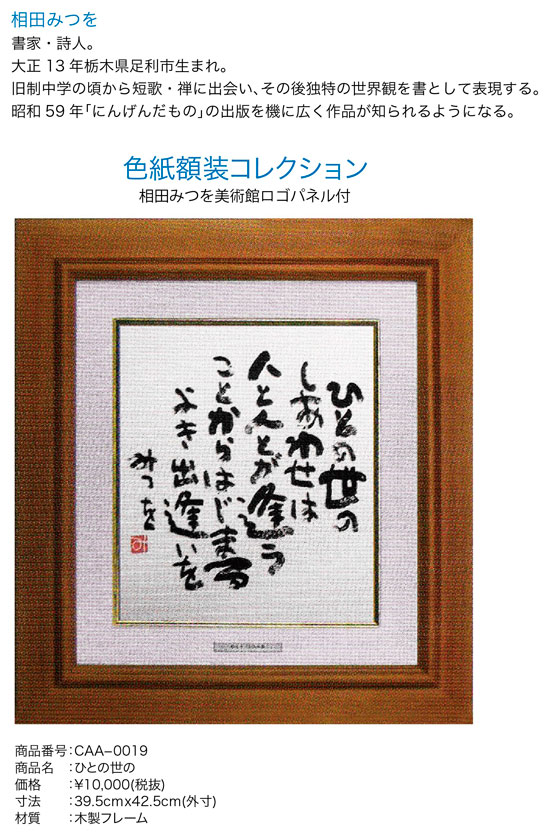 相田みつを
書家・詩人。
大正13年栃木県足利市生まれ。
旧制中学の頃から短歌・禅に出会い、その後独特の世界観を書として表現する。
昭和59年「にんげんだもの」の出版を機に広く作品が知られるようになる。
色紙額装コレクション
相田みつを美術館ロゴパネル付
ひとの世の
しあわせは
人と人とが逢う
ことからはじまる
よき出逢いを
みつを
商品番号:CAA−0019
商品名 :ひとの世の
価格 :¥10,000(税抜)
寸法 :39.5cmx42.5cm(外寸)
材質 :木製フレーム